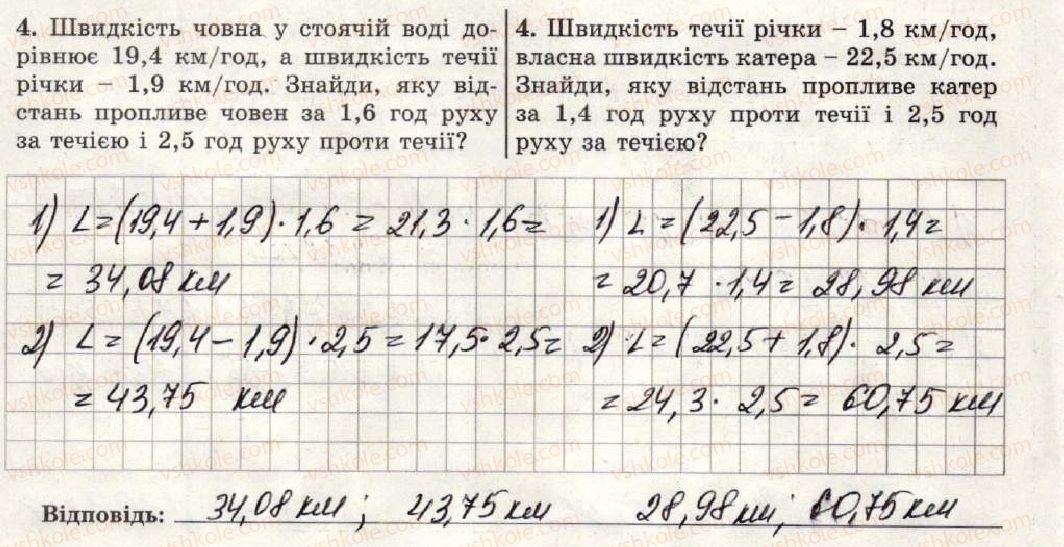 4. Швидкість човна у стоячій воді до-
рівнює 19,4 км/год, а швидкість течії
річки – 1,9 км/год. Знайди, яку від-
стань пропливе човен за 1,6 год руху
за течією і 2,5 год руху проти течії?
4. Швидкість течії річки – 1,8 км/год,
власна швидкість катера – 22,5 км/год.
Знайди, яку відстань пропливе катер
за 1,4 год руху проти течії і 2,5 год
руху за течією?
1) L=(19,4+1,9)·1,6 = 21,3·1,6=
= 34,08 км
2) L=(19,4-1,9)·2,5=17,5·2,5=
= 43,75 км
1) L=(22,5-1,8)·1,4=
= 20,7·1,4= 28,98 км
2) L=(22,5+1,8)·2,5=
= 24,3·2,5= 60,75 км
Відповідь: 34,08 км; 43,75 км 28,98 км; 60,75 км